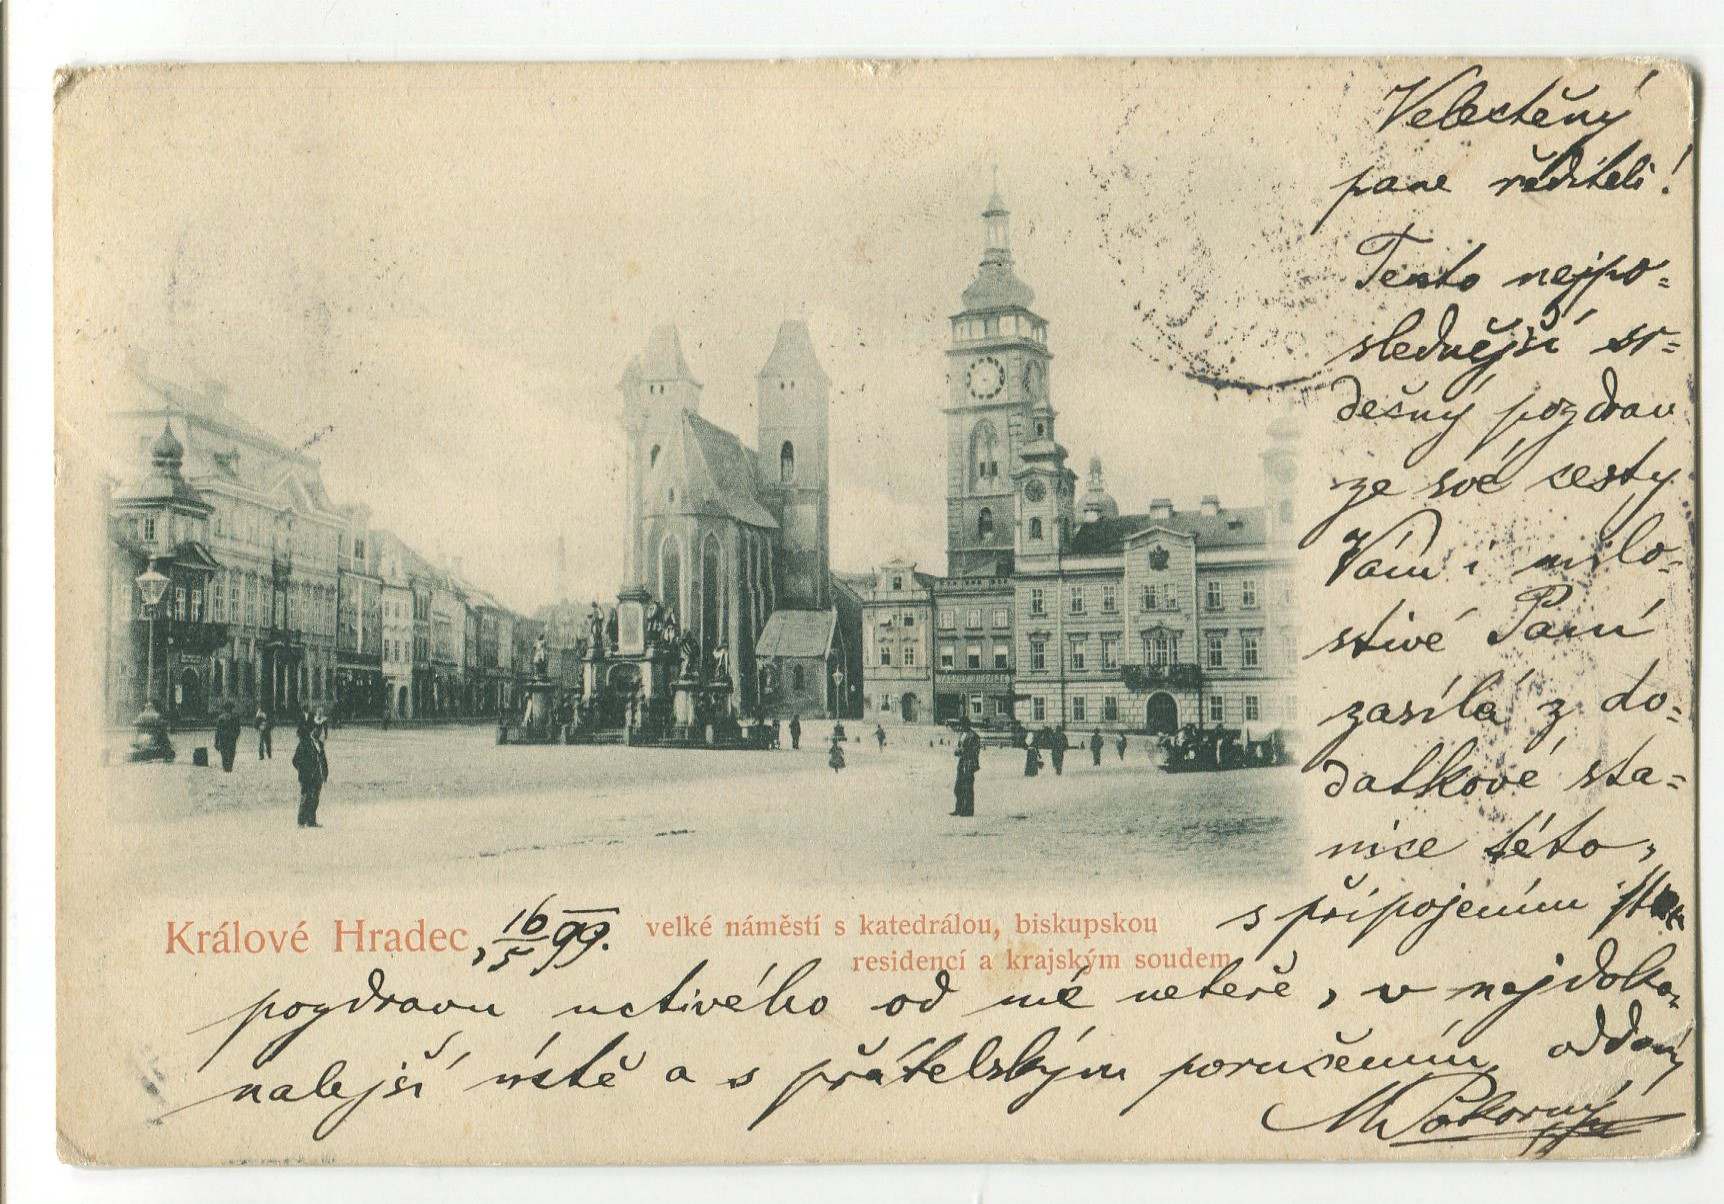 Velectěný
pane řediteli!
Tento nejpo=
slednější sr=
dečný pozdrav
ze své cesty
Vám i milo-
stivé Paní
zasílá z do=
datkové sta=
nice této,
s připojením
Králové Hradec, 16/5 99. velké náměstí s katedrálou, biskupskou
residencí a krajským soudem
pozdravu uctivého od mé neteře, v nejdoko-
nalejší úctě a s přátelským poručením oddaný
Pokorný